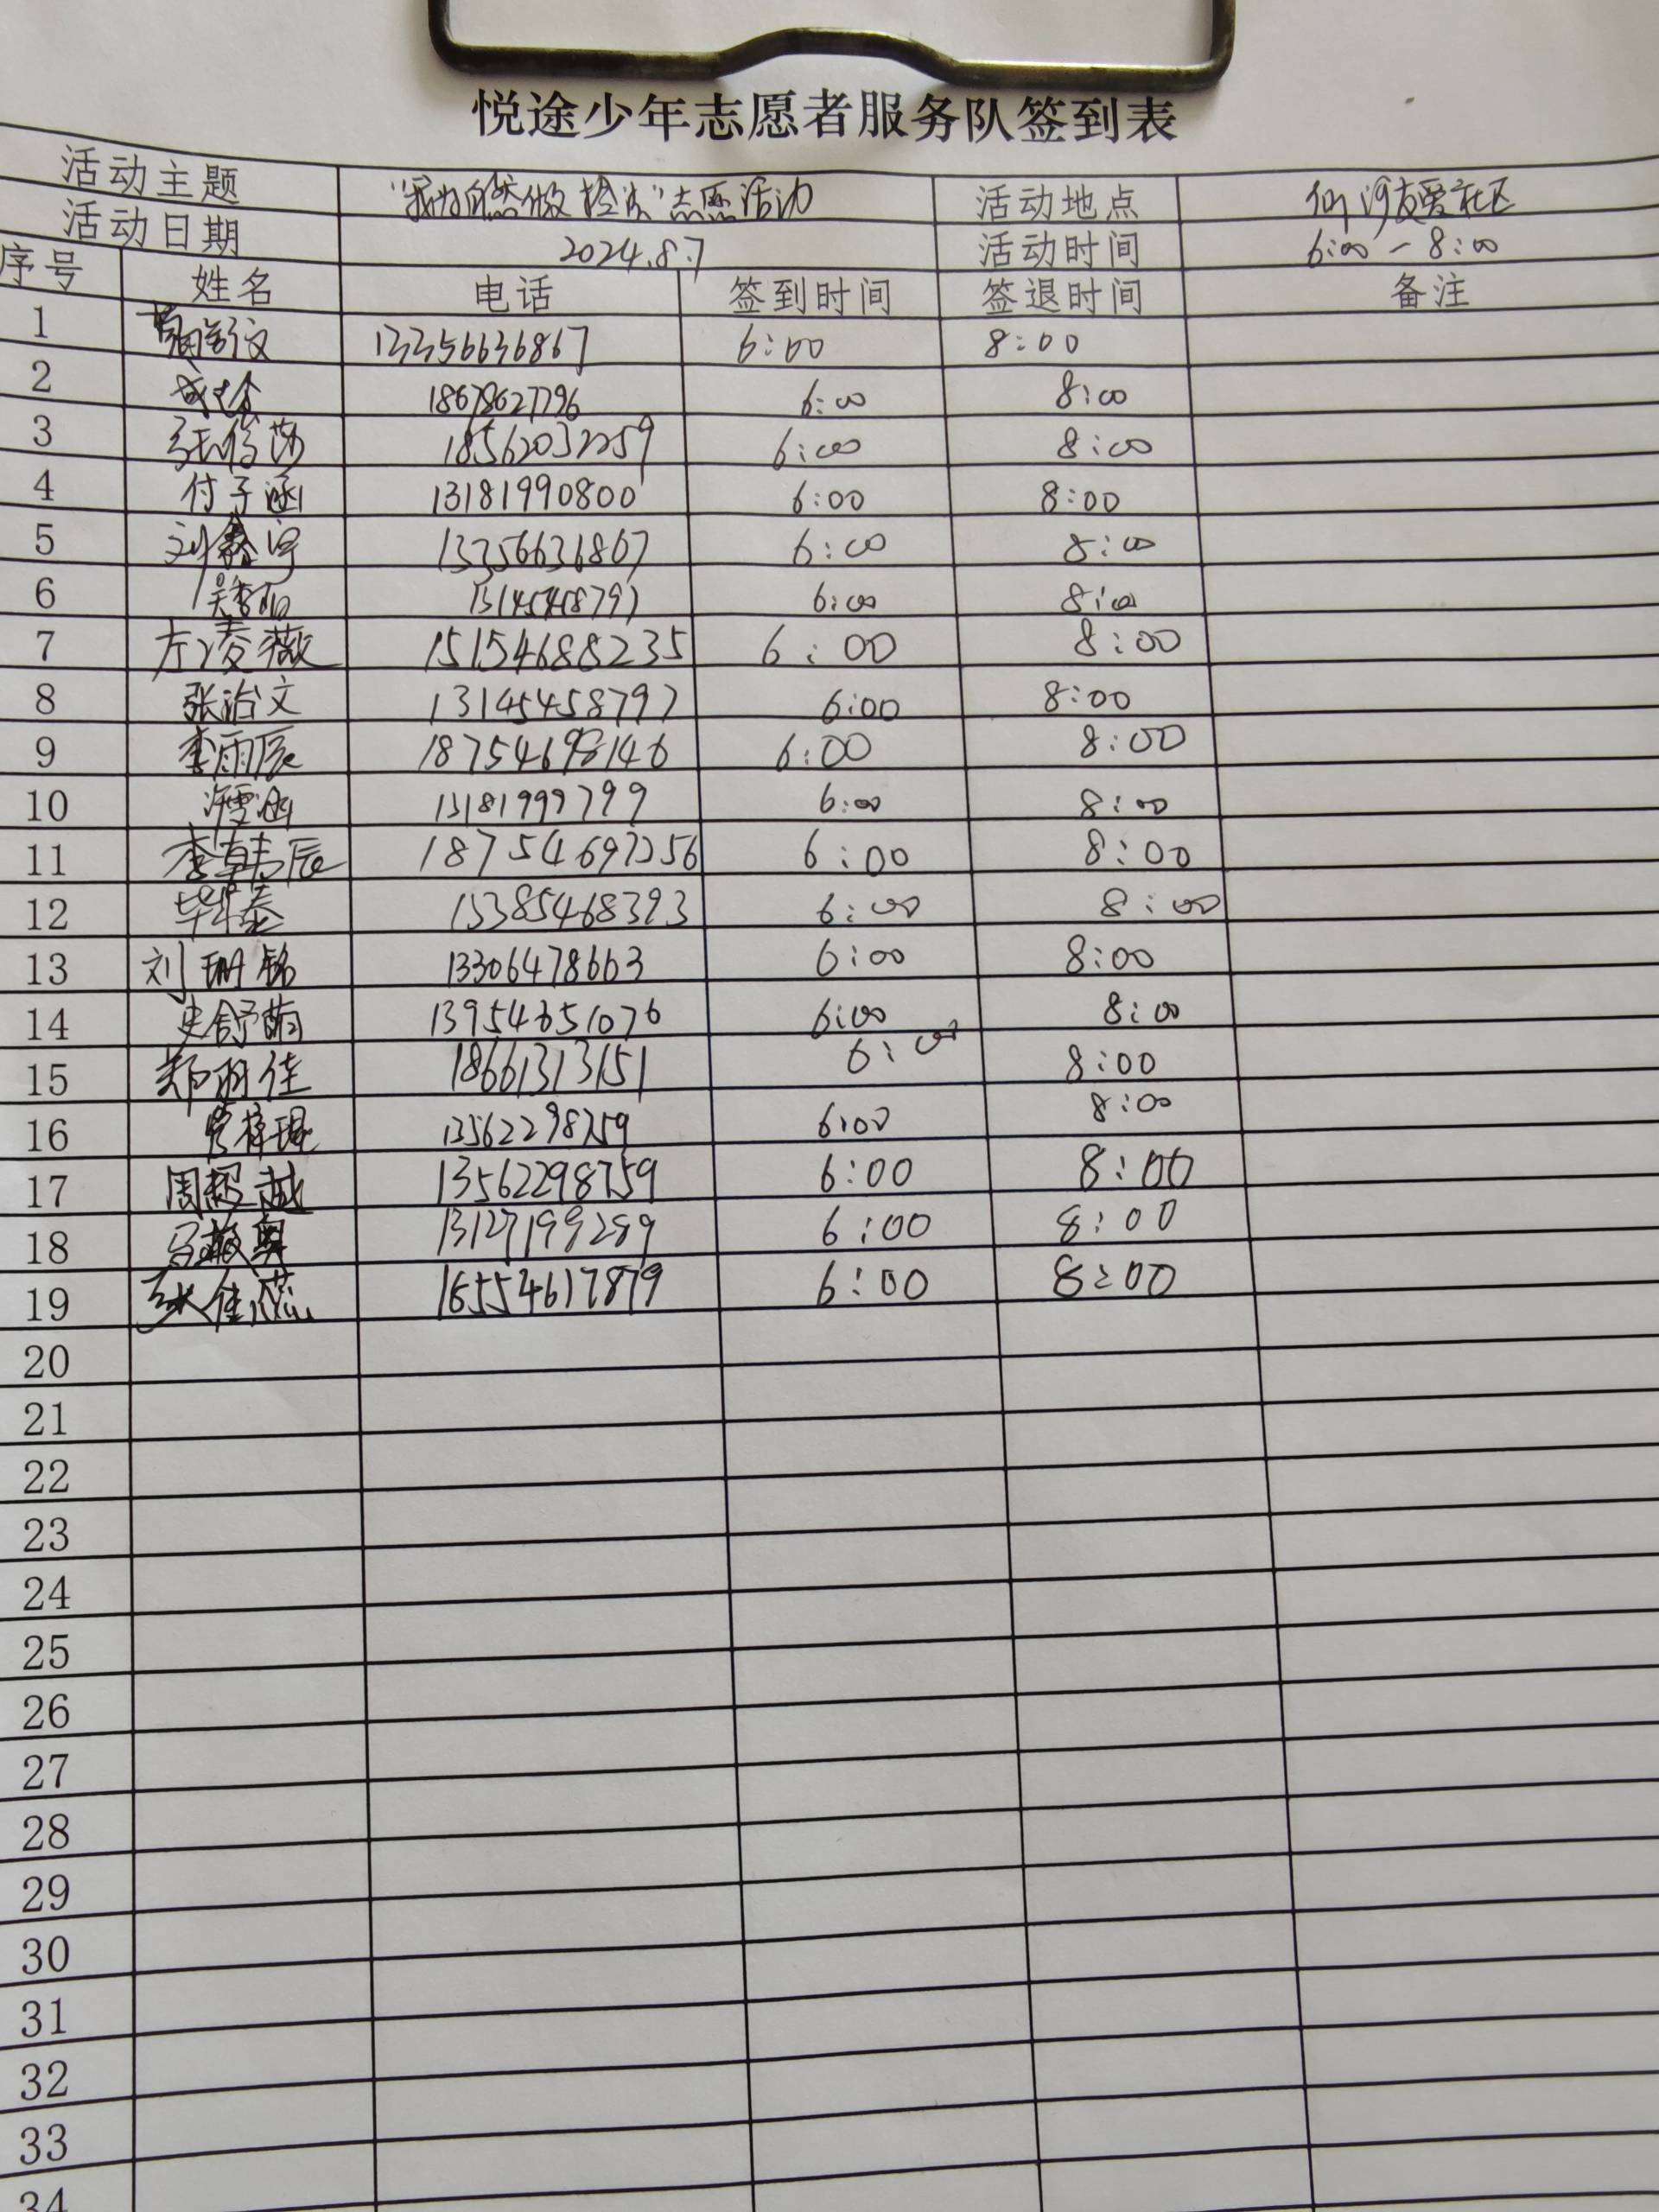 悦途少年志愿者服务队签到表
活动主题 "我为自然做 "志愿活动 活动地点 友爱社区
活动日期 2024.8.7 活动时间 6:00-8:00
序号 姓名 电话 签到时间 签退时间 备注
1 13356636867 6:00 8:00
2 18678627796 6:00 8:00
3 6:00 8:00
4 付子涵 13181990800 6:00 8:00
5 刘鑫宇 13356636867 6:00 8:00
6 6:00 8:00
7 左凌薇 15154688235 6:00 8:00
8 张治文 13145458797 6:00 8:00
9 李雨辰 18754698146 6:00 8:00
10 13181999799 6:00 8:00
11 18754697256 6:00 8:00
12 15385468393 6:00 8:00
13 刘珊铭 13306478663 6:00 8:00
14 史舒萌 13954651076 6:00 8:00
15 郑羽佳 18661313151 6:00 8:00
16 13562298759 6:00 8:00
17 周超越 13562298759 6:00 8:00
18 13127199289 6:00 8:00
19 张佳蕊 16554617879 6:00 8:00
20
21
22
23
24
25
26
27
28
29
30
31
32
33
34